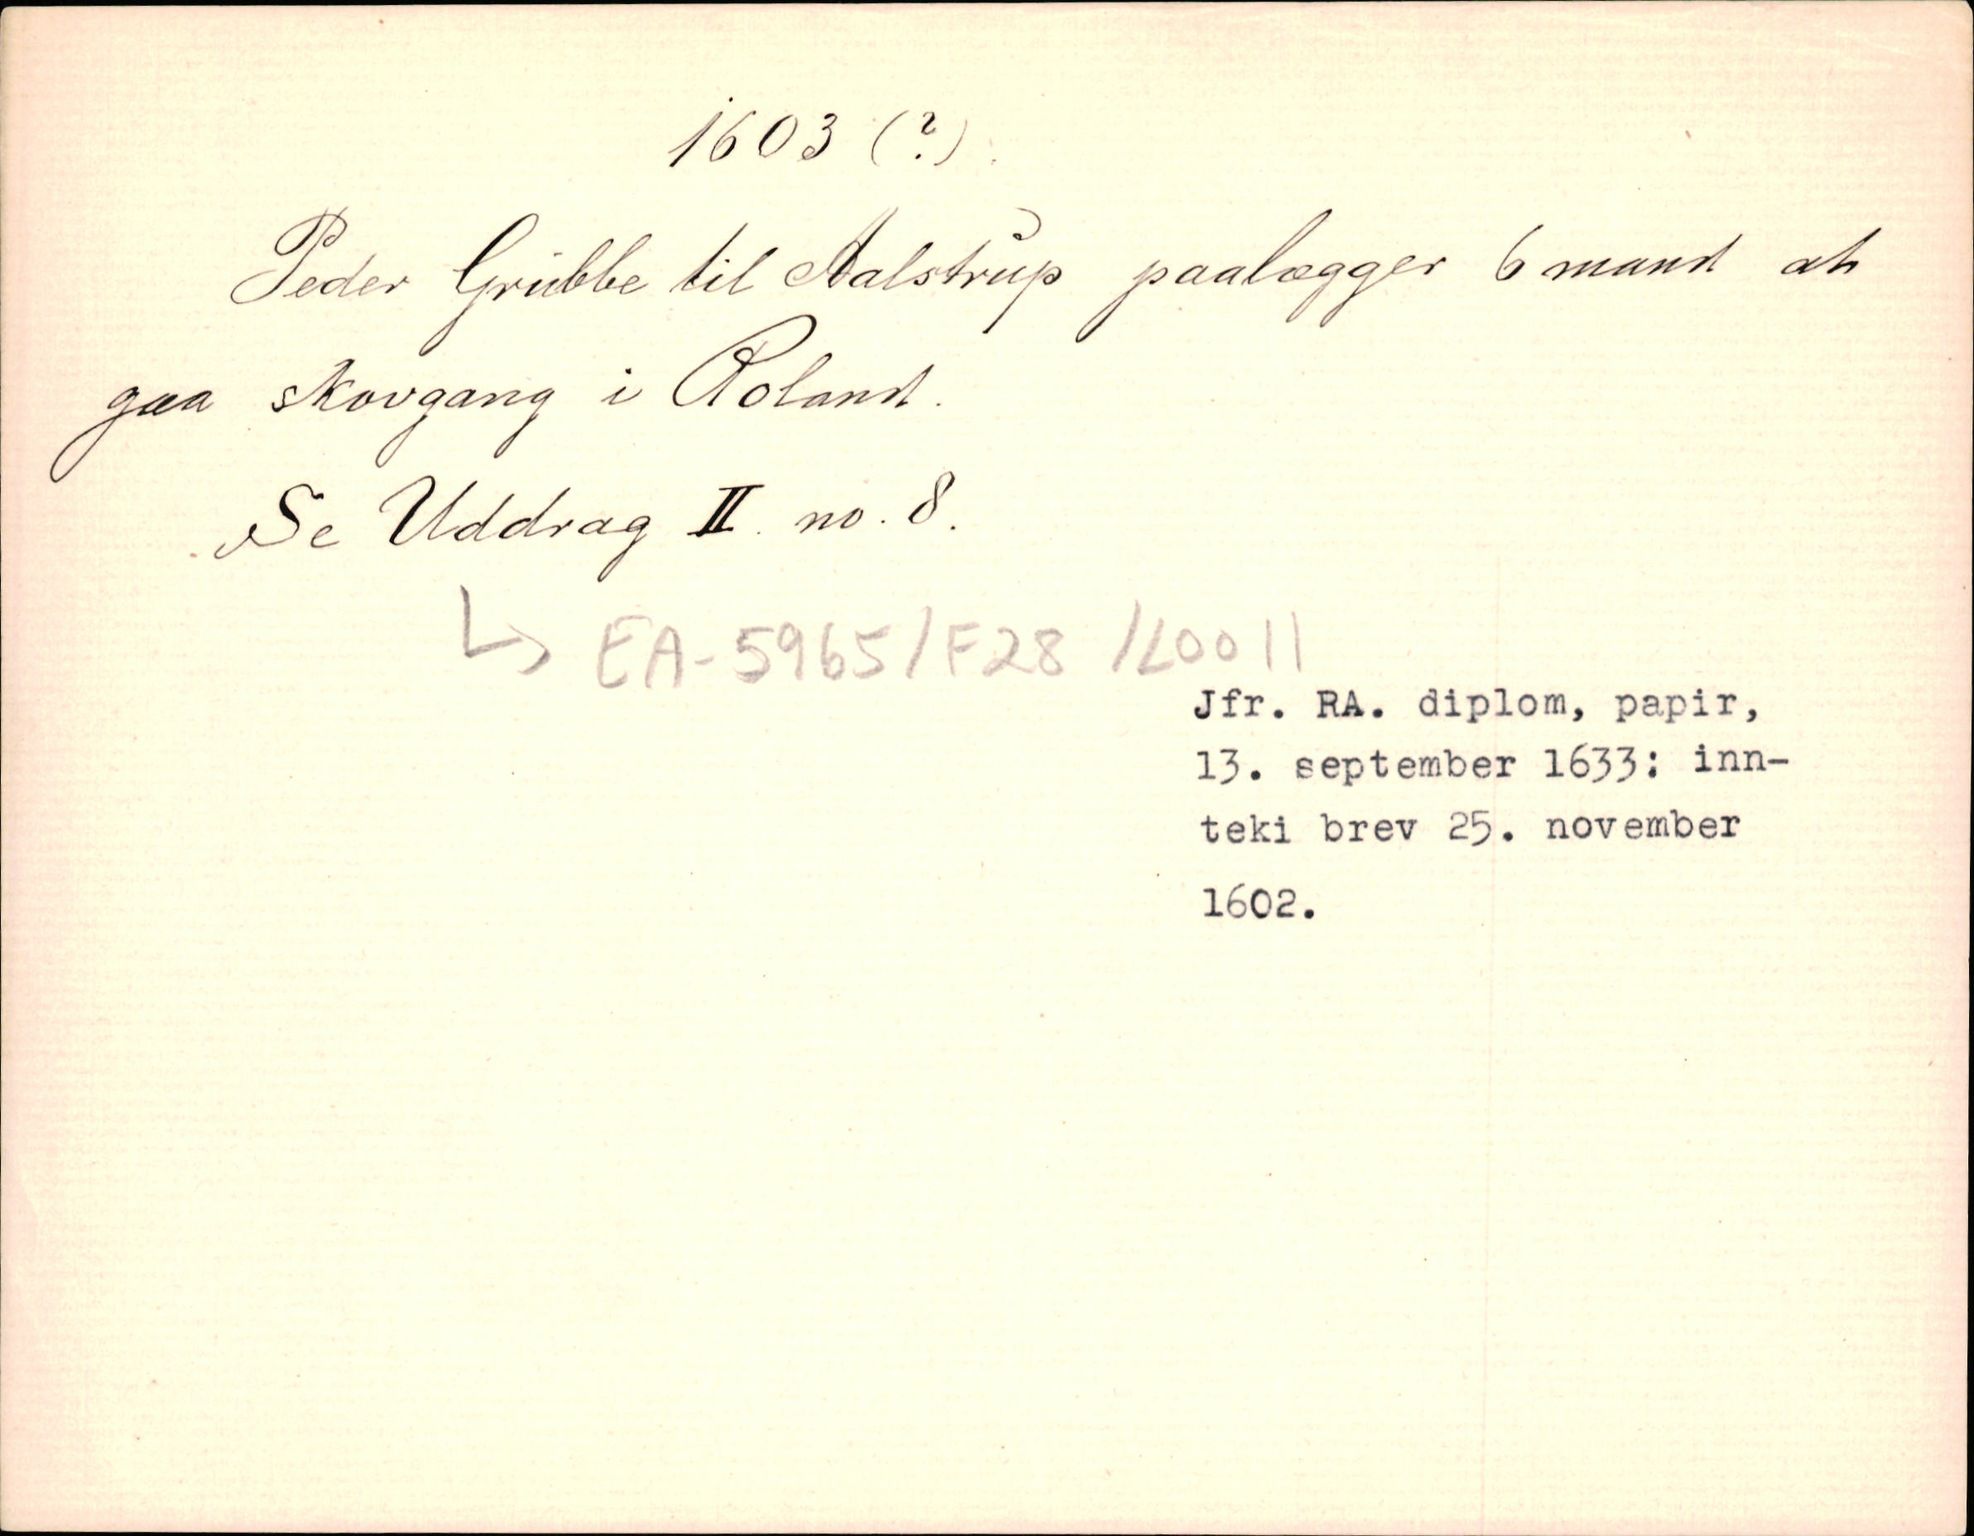 1603 (?).
Peder Grubbe til Aalstrup paalægger 6 mand at
gaa skovgang i Roland.
Se Uddrag II. no. 8.
↳ EA-5965/F28/L0011
Jfr. RA. diplom, papir,
13. september 1633: inn-
teki brev 25. november
1602.